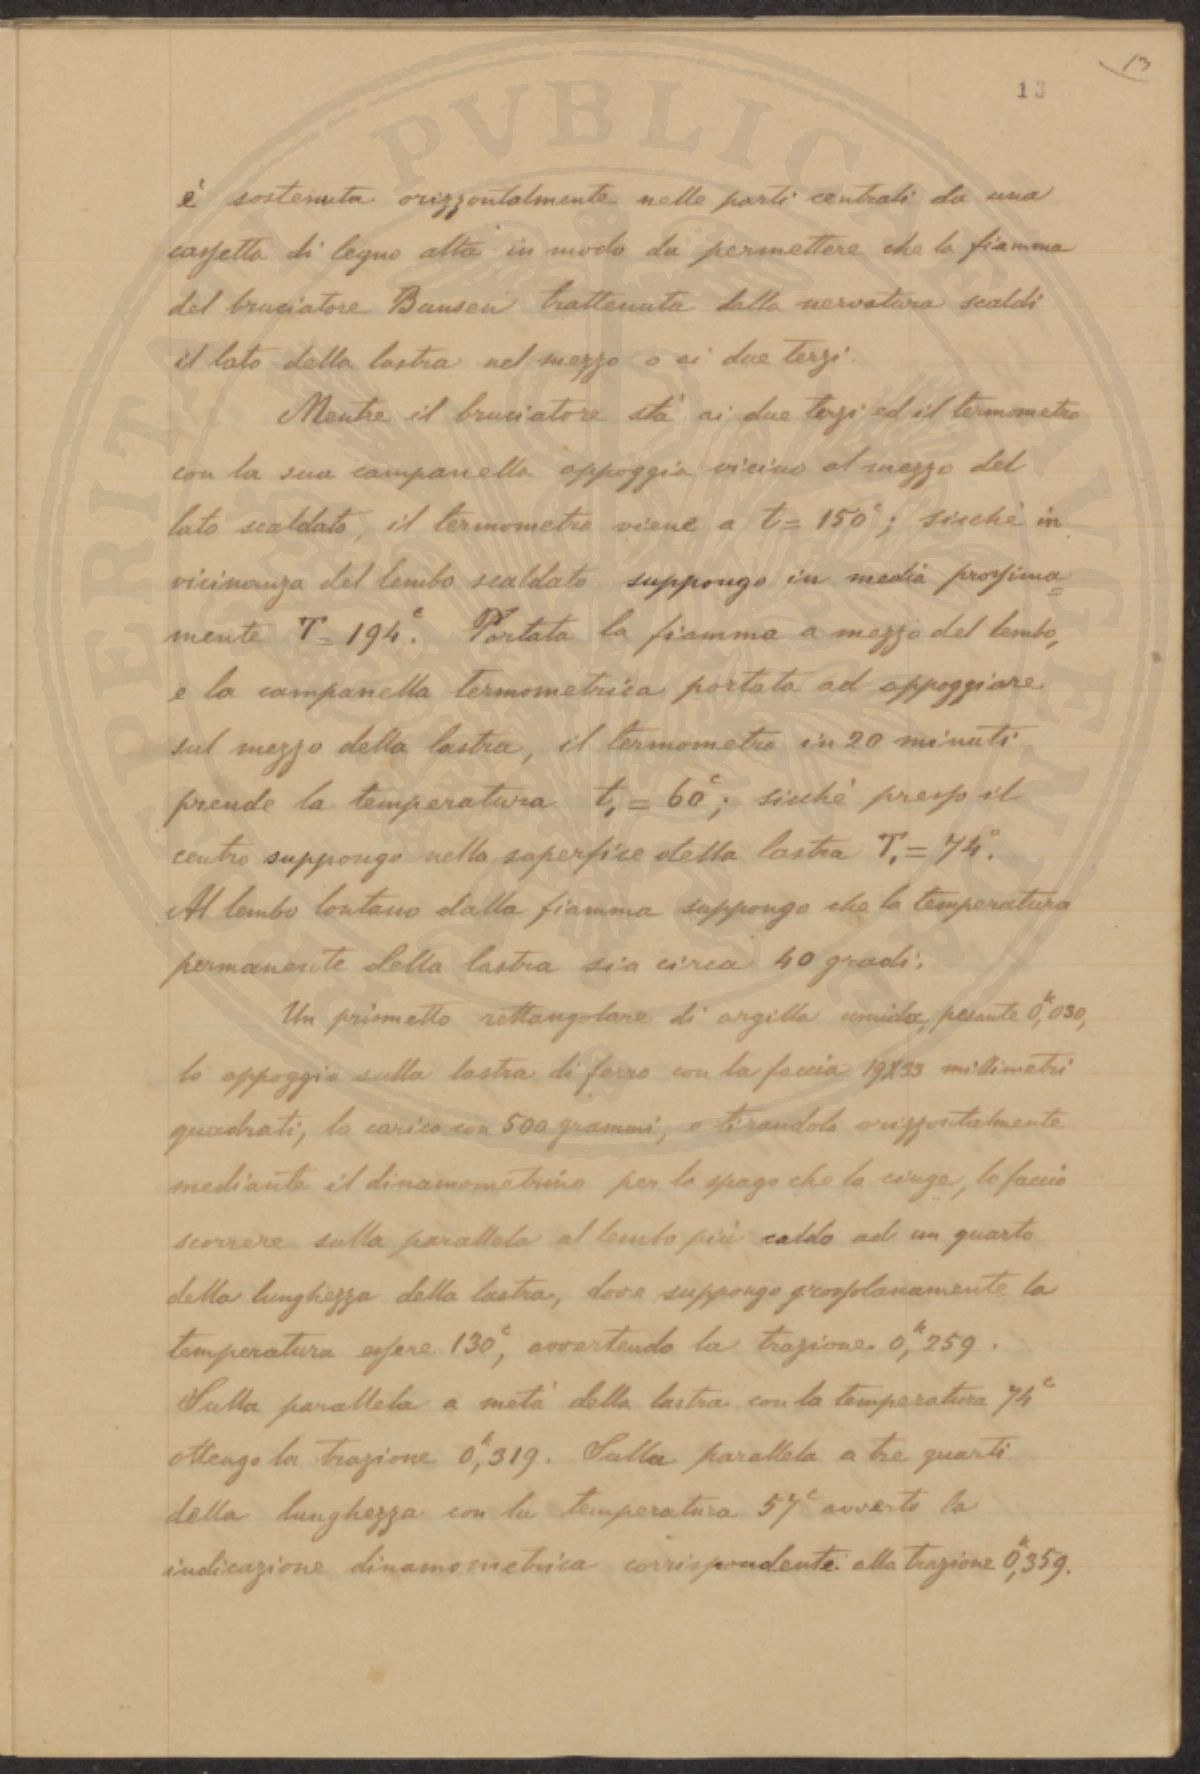 13
13
è sostenuta orizzontalmente nelle parti centrali da una
cassetta di legno alta in modo da permettere che la fiamma
del bruciatore Bunsen trattenuta dalla nervatura scaldi
il lato della lastra nel mezzo o ai due terzi.
Mentre il bruciatore stà ai due terzi ed il termometro
con la sua campanella appoggia vicino al mezzo del
lato scaldato, il termometro viene a t = 150ᶜ; sicchè in
vicinanza del lembo scaldato suppongo in media prossima=
mente T = 194ᶜ. Portata la fiamma a mezzo del lembo,
e la campanella termometrica portata ad appoggiare
sul mezzo della lastra, il termometro in 20 minuti
prende la temperatura t₁ = 60ᶜ; sicchè presso il
centro suppongo nella superfice della lastra T₁ = 74°.
Al lembo lontano dalla fiamma suppongo che la temperatura
permanente della lastra sia circa 40 gradi.
Un prismetto rettangolare di argilla umida, pesante 0,ᵏ030,
lo appoggio sulla lastra di ferro con la faccia 19X33 millimetri
quadrati, lo carico con 500 grammi, e tirandolo orizzontalmente
mediante il dinamometrino per lo spago che lo cinge, lo faccio
scorrere sulla parallela al lembo più caldo ad un quarto
della lunghezza della lastra, dove suppongo grossolanamente la
temperatura essere 130ᶜ, avvertendo la trazione 0,ᵏ259.
Sulla parallela a metà della lastra con la temperatura 74ᶜ
ottengo la trazione 0,ᵏ319. Sulla parallela a tre quarti
della lunghezza con la temperatura 57ᶜ avverto la
indicazione dinamometrica corrispondente alla trazione 0,ᵏ359.